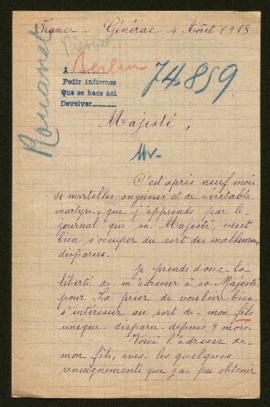 France - Générac 4 Août 1915
Rouanet
A Berlin
Pedir informes
Que se hace así
Devolver
74859
Majesté,
C'est après neuf mois
de mortelles angoisses et de véritable
martyre, que j'apprends par le
journal que sa Majesté, veut
bien s'occuper du sort des malheureux
disparus.
Je prends donc la
liberté de m'adresser à sa Majesté
pour La prier de vouloir bien
s'intéresser au sort de mon fils
unique disparu depuis 9 mois.
Voici l'adresse de
mon fils, avec les quelques
renseignements que j'ai pu obtenir